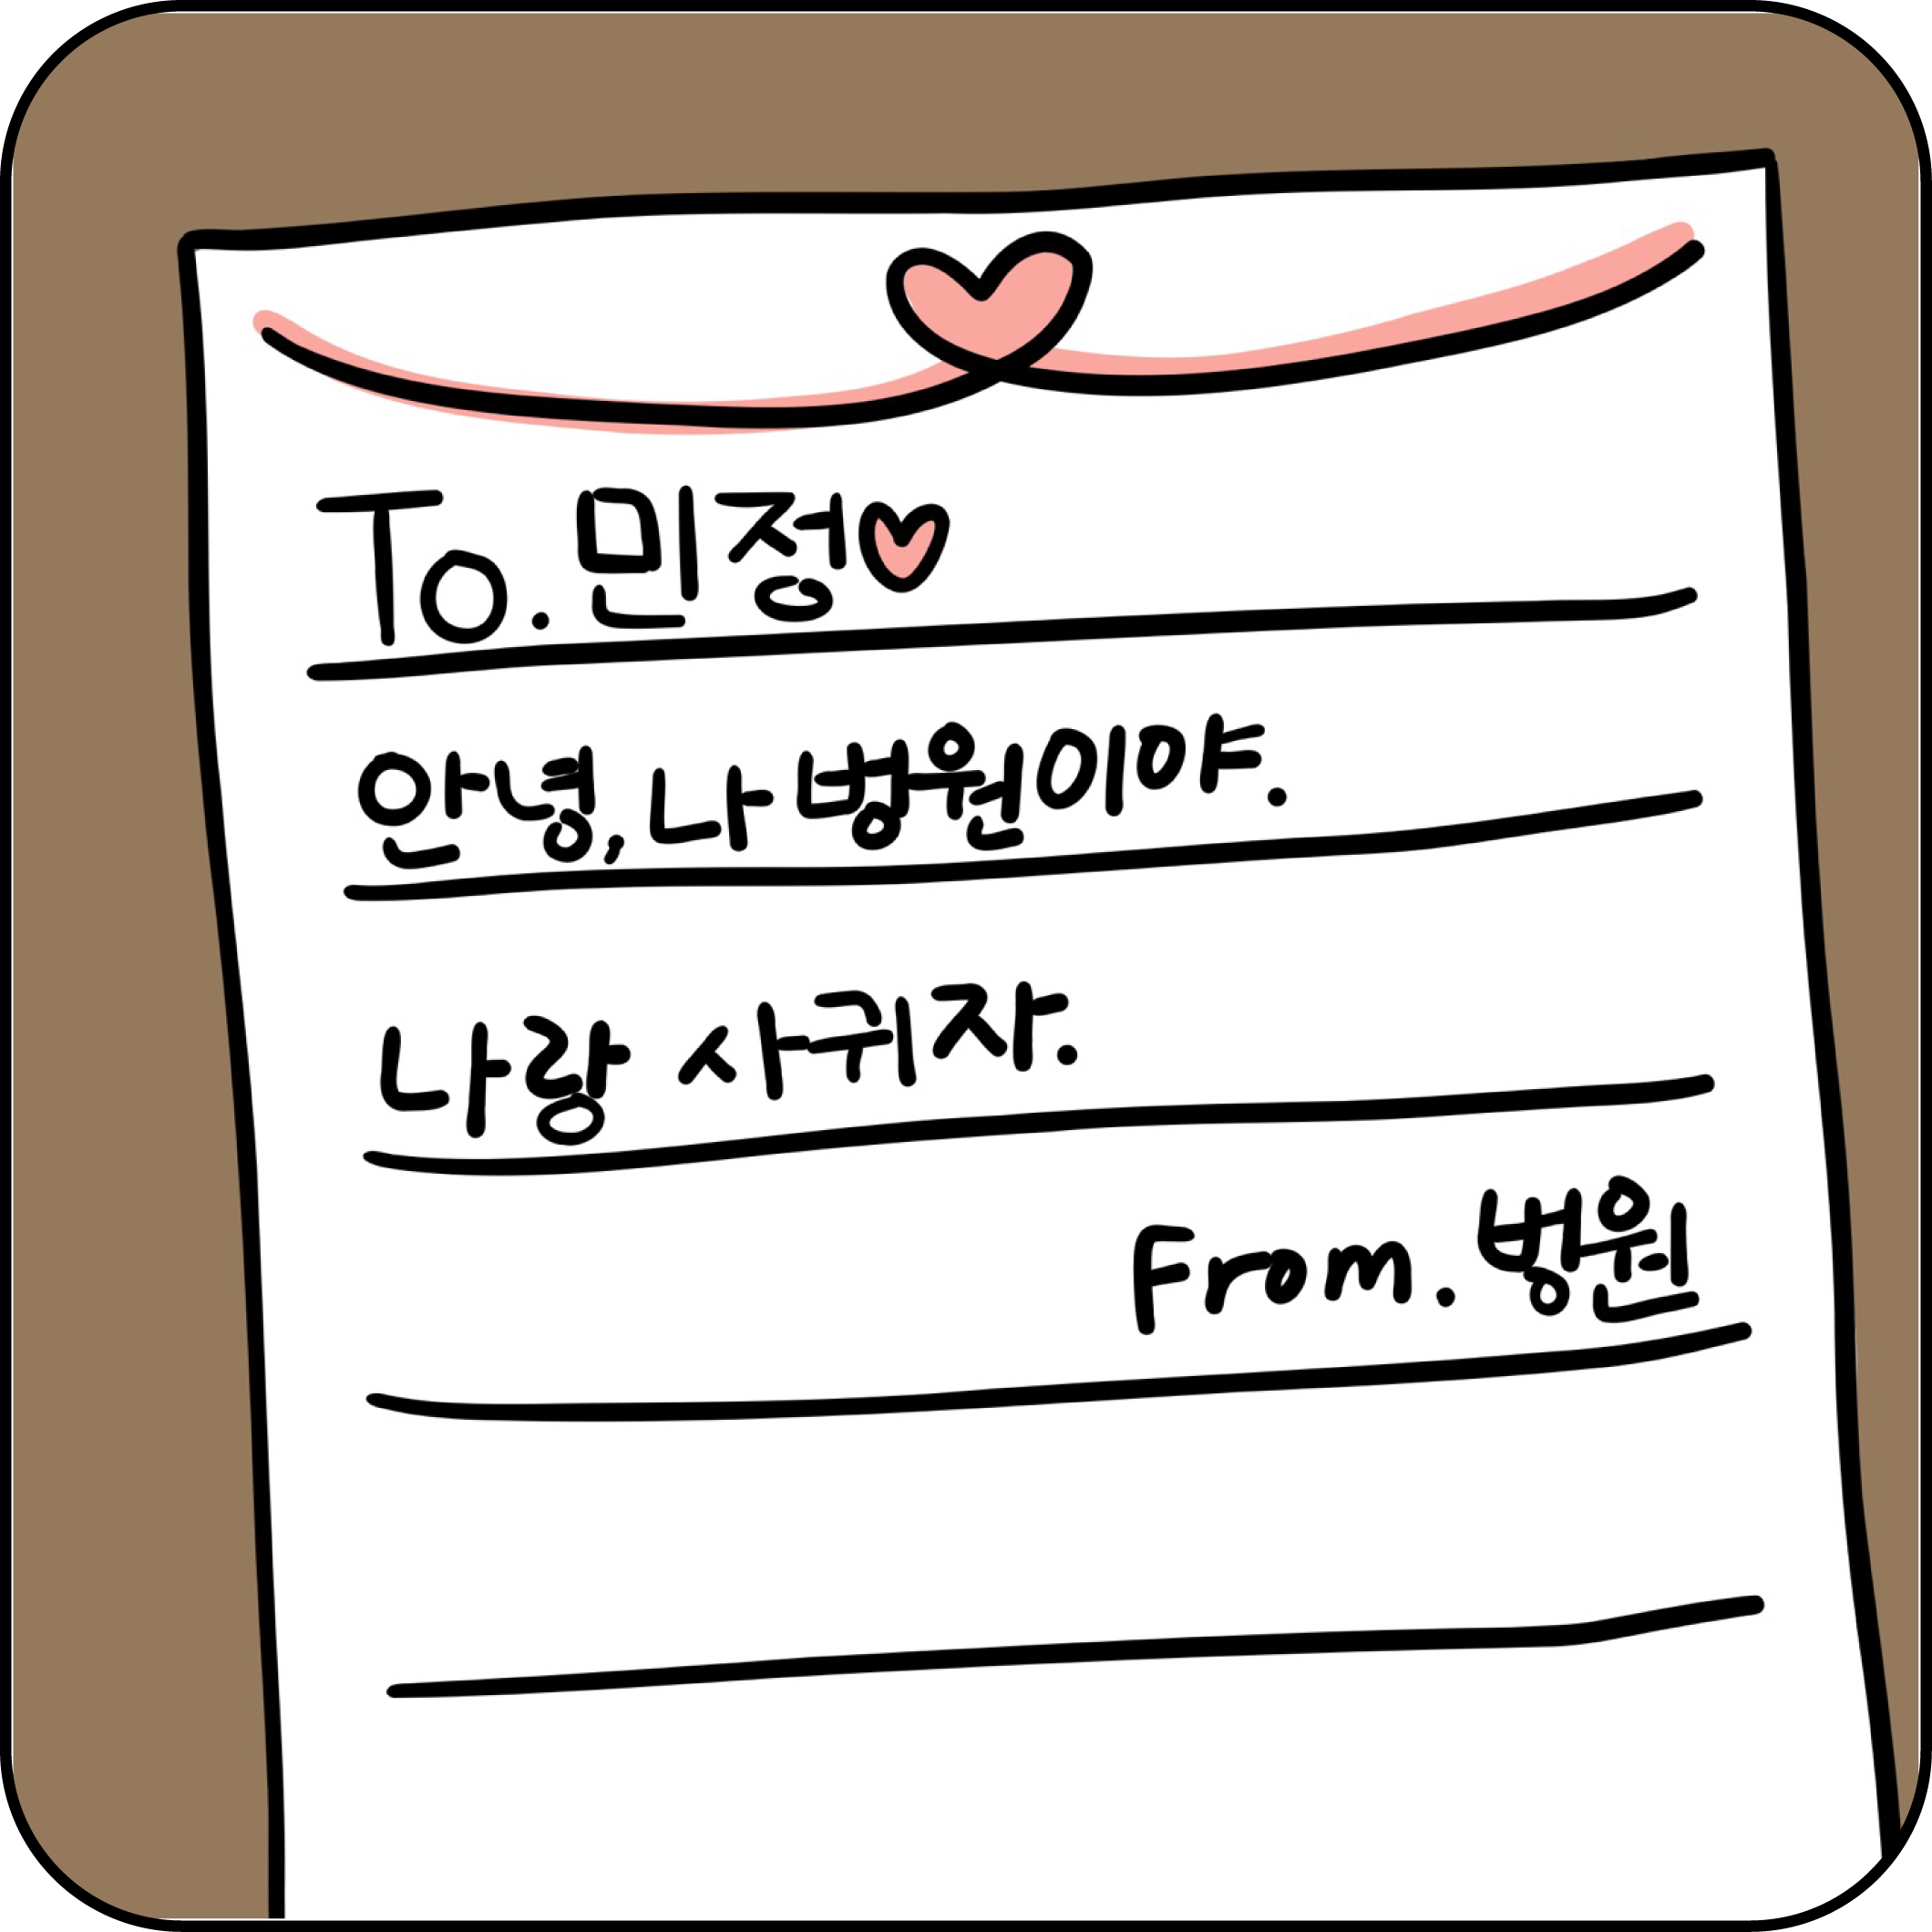 To. 민정♥
안녕, 나 병원이야.
나랑 사귀자.
From. 병원